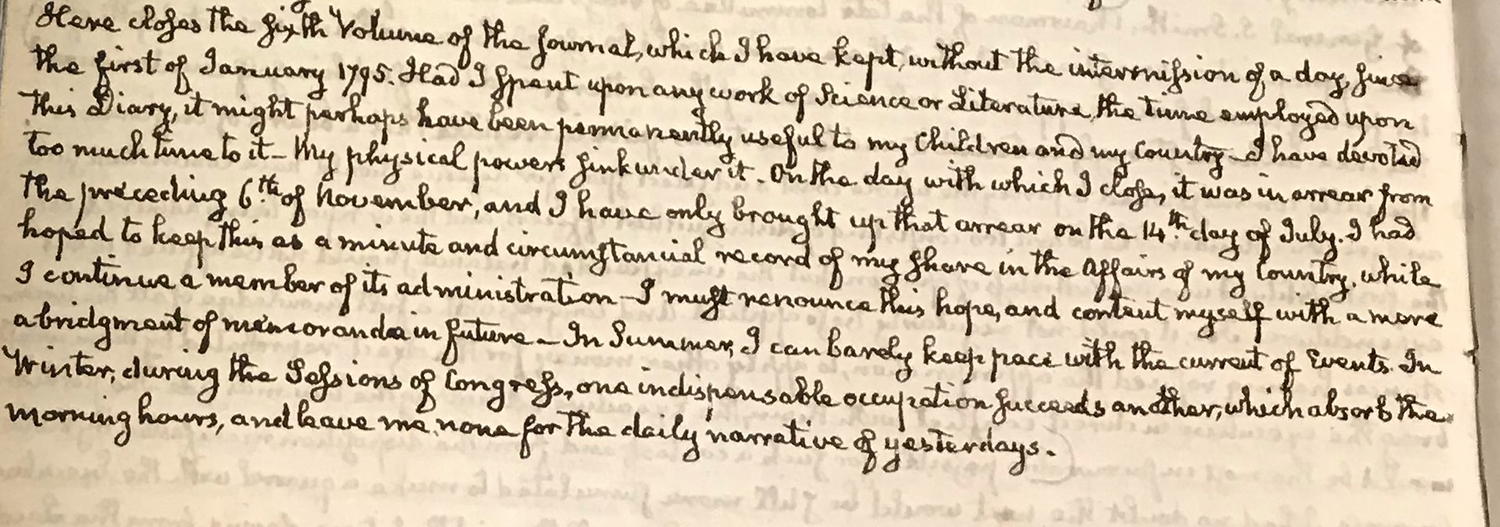 Here closes the sixth Volume of the Journal, which I have kept, without the intermission of a day, since
the first of January 1795. Had I spent upon any work of Science or Literature, the time employed upon
this Diary, it might perhaps have been permanently useful to my Children and my Country — I have devoted
too much time to it — My physical powers sink under it. On the day with which I close, it was in arrear from
the preceding 6th. of November, and I have only brought up that arrear on the 14th. day of July. I had
hoped to keep this as a minute and circumstancial record of my share in the Affairs of my Country, while
I continue a member of its administration — I must renounce this hope, and content myself with a mere
abridgment of memoranda in future — In Summer, I can barely keep pace with the current of Events. In
Winter, during the Sessions of Congress, one indispensable occupation succeeds another, which absorb the
morning hours, and leave me none for the daily narrative of yesterdays.